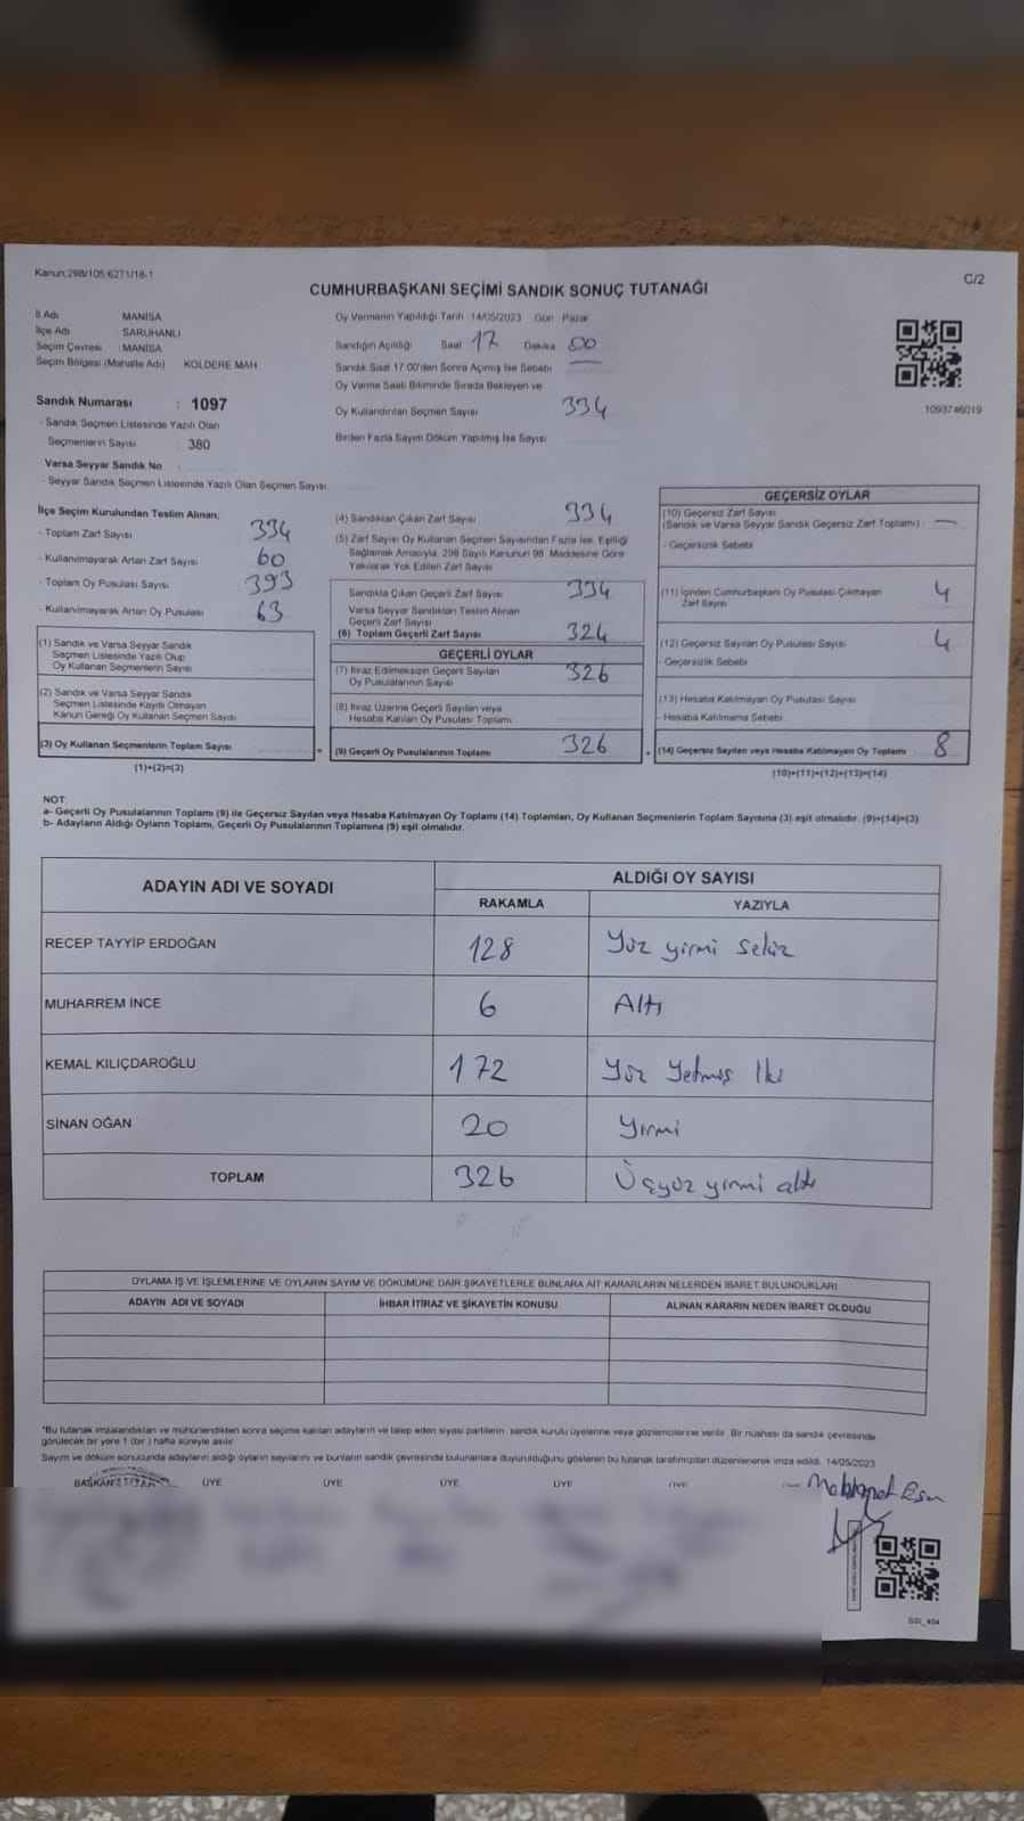 Kanun:298/105,6271/18-1
C/2
CUMHURBAŞKANI SEÇİMİ SANDIK SONUÇ TUTANAĞI
İl Adı MANİSA
İlçe Adı SARUHANLI
Seçim Çevresi : MANİSA
Seçim Bölgesi (Mahalle Adı) KOLDERE MAH
Sandık Numarası : 1097
- Sandık Seçmen Listesinde Yazılı Olan
Seçmenlerin Sayısı : 380
Varsa Seyyar Sandık No
- Seyyar Sandık Seçmen Listesinde Yazılı Olan Seçmen Sayısı
Oy Vermenin Yapıldığı Tarih :14/05/2023 Gün : Pazar
Sandığın Açıldığı Saat 17 Dakika 00
Sandık Saat 17:00'den Sonra Açılmış İse Sebebi
Oy Verme Saati Bitiminde Sırada Bekleyen ve
Oy Kullandırılan Seçmen Sayısı 334
Birden Fazla Sayım Döküm Yapılmış İse Sayısı
1093746019
İlçe Seçim Kurulundan Teslim Alınan;
- Toplam Zarf Sayısı 334
- Kullanılmayarak Artan Zarf Sayısı 60
- Toplam Oy Pusulası Sayısı 393
- Kullanılmayarak Artan Oy Pusulası 63
(1) Sandık ve Varsa Seyyar Sandık
Seçmen Listesinde Yazılı Olup
Oy Kullanan Seçmenlerin Sayısı
(2) Sandık ve Varsa Seyyar Sandık
Seçmen Listesinde Kayıtlı Olmayan
Kanun Gereği Oy Kullanan Seçmen Sayısı
(3) Oy Kullanan Seçmenlerin Toplam Sayısı
(1)+(2)=(3)
(4) Sandıktan Çıkan Zarf Sayısı 334
(5) Zarf Sayısı Oy Kullanan Seçmen Sayısından Fazla İse, Eşitliği
Sağlamak Amacıyla, 298 Sayılı Kanunun 98. Maddesine Göre
Yakılarak Yok Edilen Zarf Sayısı
Sandıkta Çıkan Geçerli Zarf Sayısı 334
Varsa Seyyar Sandıktan Teslim Alınan
Geçerli Zarf Sayısı
(6) Toplam Geçerli Zarf Sayısı 324
GEÇERLİ OYLAR
(7) İtiraz Edilmeksizin Geçerli Sayılan
Oy Pusulalarının Sayısı 326
(8) İtiraz Üzerine Geçerli Sayılan veya
Hesaba Katılan Oy Pusulası Toplamı
(9) Geçerli Oy Pusulalarının Toplamı 326
GEÇERSİZ OYLAR
(10) Geçersiz Zarf Sayısı
(Sandık ve Varsa Seyyar Sandık Geçersiz Zarf Toplamı) —
- Geçersizlik Sebebi
(11) İçinden Cumhurbaşkanı Oy Pusulası Çıkmayan
Zarf Sayısı 4
(12) Geçersiz Sayılan Oy Pusulası Sayısı 4
- Geçersizlik Sebebi
(13) Hesaba Katılmayan Oy Pusulası Sayısı
- Hesaba Katılmama Sebebi
(14) Geçersiz Sayılan veya Hesaba Katılmayan Oy Toplamı 8
(10)+(11)+(12)+(13)=(14)
NOT:
a- Geçerli Oy Pusulalarının Toplamı (9) ile Geçersiz Sayılan veya Hesaba Katılmayan Oy Toplamı (14) Toplamları, Oy Kullanan Seçmenlerin Toplam Sayısına (3) eşit olmalıdır. (9)+(14)=(3)
b- Adayların Aldığı Oyların Toplamı, Geçerli Oy Pusulalarının Toplamına (9) eşit olmalıdır.
ADAYIN ADI VE SOYADI ALDIĞI OY SAYISI
RAKAMLA YAZIYLA
RECEP TAYYİP ERDOĞAN 128 Yüz yirmi sekiz
MUHARREM İNCE 6 Altı
KEMAL KILIÇDAROĞLU 172 Yüz Yetmiş İki
SİNAN OĞAN 20 Yirmi
TOPLAM 326 Üçyüz yirmi altı
OYLAMA İŞ VE İŞLEMLERİNE VE OYLARIN SAYIM VE DÖKÜMÜNE DAİR ŞİKAYETLERLE BUNLARA AİT KARARLARIN NELERDEN İBARET BULUNDUKLARI
ADAYIN ADI VE SOYADI İHBAR İTİRAZ VE ŞİKAYETİN KONUSU ALINAN KARARIN NEDEN İBARET OLDUĞU
*Bu tutanak imzalandıktan ve mühürlendikten sonra seçime katılan adayların ve talep eden siyasi partilerin sandık kurulu üyelerine veya gözlemcilerine verilir. Bir nüshası da sandık çevresinde
görülecek bir yere 1 (bir ) hafta süreyle asılır.
Sayım ve döküm sonucunda adayların aldığı oyların sayılarını ve bunların sandık çevresinde bulunanlara duyurulduğunu gösteren bu tutanak tarafımızdan düzenlenerek imza edildi. 14/05/2023
BAŞKAN ÜYE ÜYE ÜYE ÜYE ÜYE